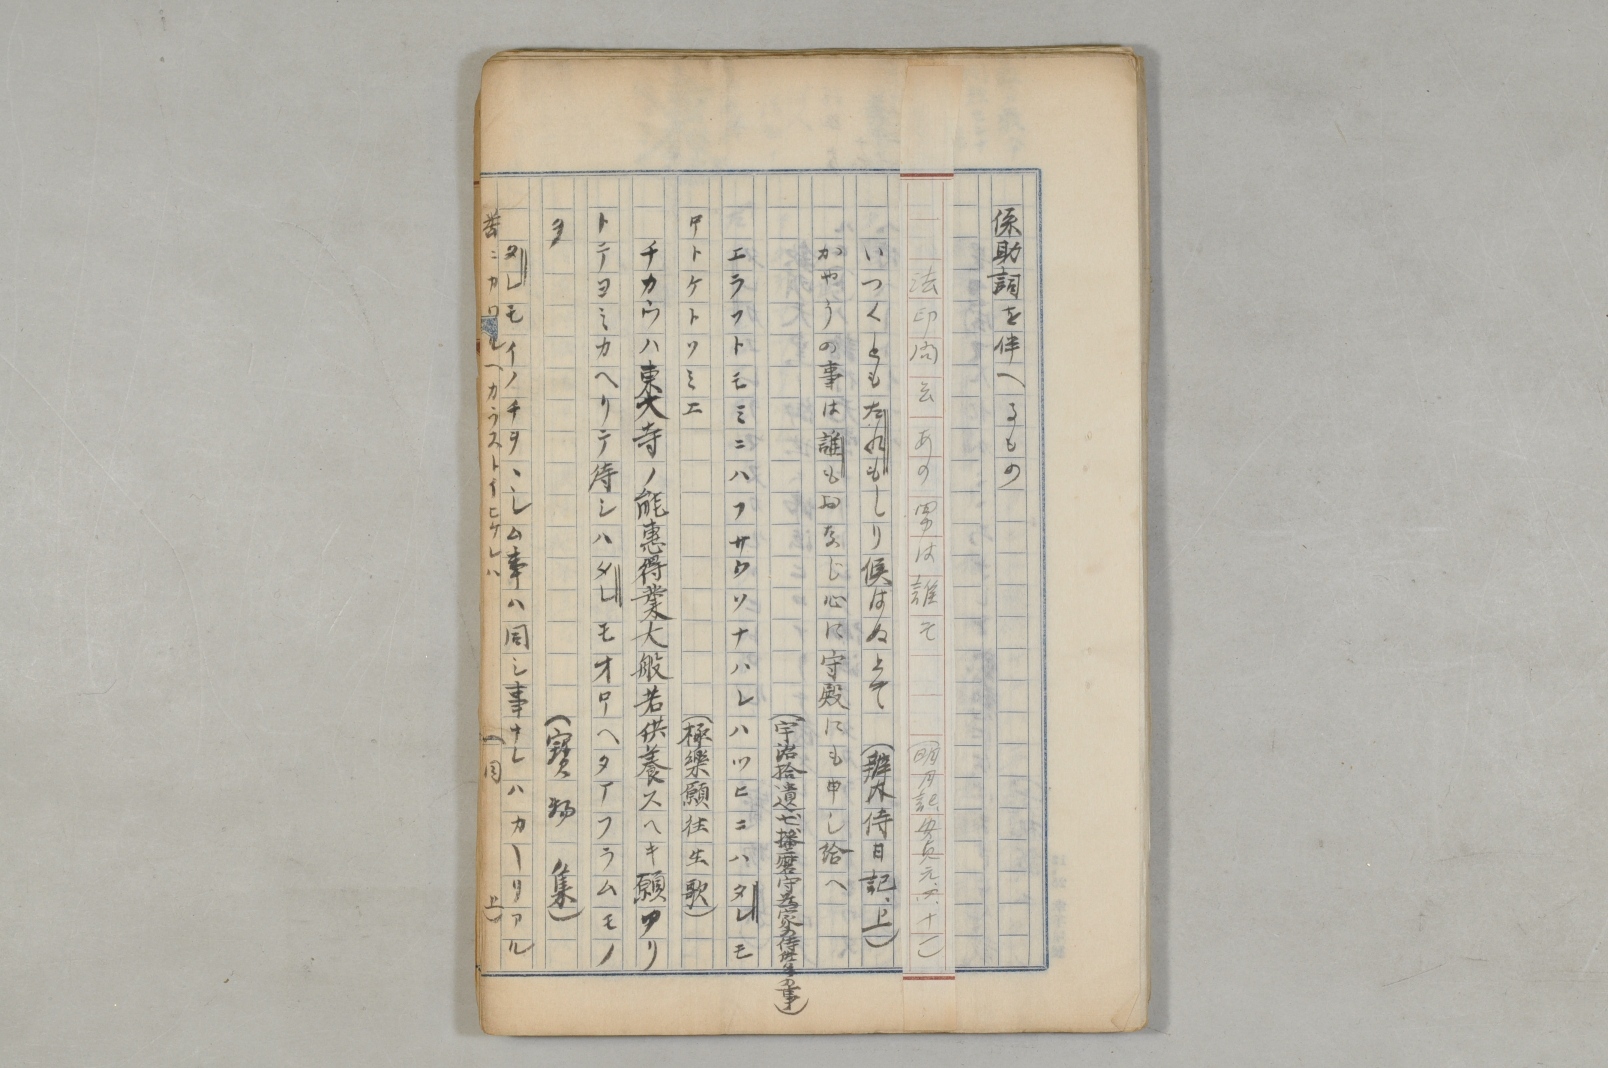 係助詞を伴へるもの
法印問云あの男は誰そ　明月記安貞元、六、十一
いつくともたれもしり候はぬとて　（辨内侍日記、上）
かやうの事は誰もおなじ心に守殿にも申し給へ
（宇治拾遺七、播磨守為家の侍の事）
エラフトモミニハフサウソナハレハツヒニハタレモ
ヤトケトツミエ　（極樂願往生歌）
チカウハ東大寺ノ能惠得業大般若供養スヘキ願アリ
トテヨミカヘリテ待シハタレモオロヘタアフラムモノ
ヲ　（寶物集）
タレモイノチヲヽシム事ハ同シ事ナレハカーリアル
苦ニカワルヘカラストイヒケレハ　（同　上）